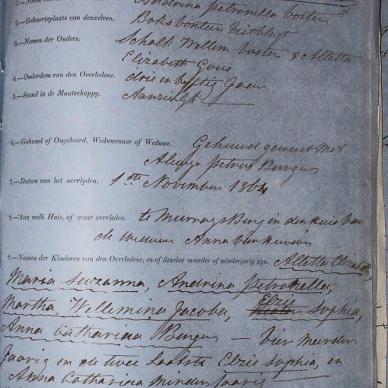 Andrina Petronella Vosloo
2.—Geboorteplaats van denzelven.
3.—Namen der Ouders. Schalk Willem Vosloo & Aletta
Elizabeth
4.—Ouderdom van den Overledene. drie en
5.—Stand in de Maatschappy. Aanzienlyk
6.—Gehuwd of Ongehuwd, Weduwenaar of Weduwe. Gehuwd geweest met
Petrus Burger
7.—Datum van het overlyden. 1ste November 1864
8.—Aan welk Huis, of waar overleden. te Murraysburg in den huis van
de weduwe Anna
9.—Namen der Kinderen van den Overledene, en of dezelve meerder of minderjarig zyn. Aletta Elizabeth,
Maria Suzanna, Andrina Petronella,
Martha Willemina Jacoba, Sophia,
Anna Catharina Burger — Vier
Jaarig en de twee laatste Sophia, en
Anna Catharina minder Jaarig